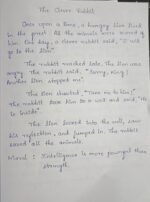 The Clever Rabbit
Once upon a time, a hungry lion lived
in the forest. All the animals were scared of
him. One day, a clever rabbit said, "I will
go to the lion".
The rabbit reached late. The lion was
angry. The rabbit said, "Sorry, King!
Another lion stopped me".
The lion shouted, "Take me to him!"
The rabbit took him to a well and said, "He
is inside".
The lion looked into the well, saw
his reflection, and jumped in. The rabbit
saved all the animals.
Moral : Intelligence is more powerful than
strength.